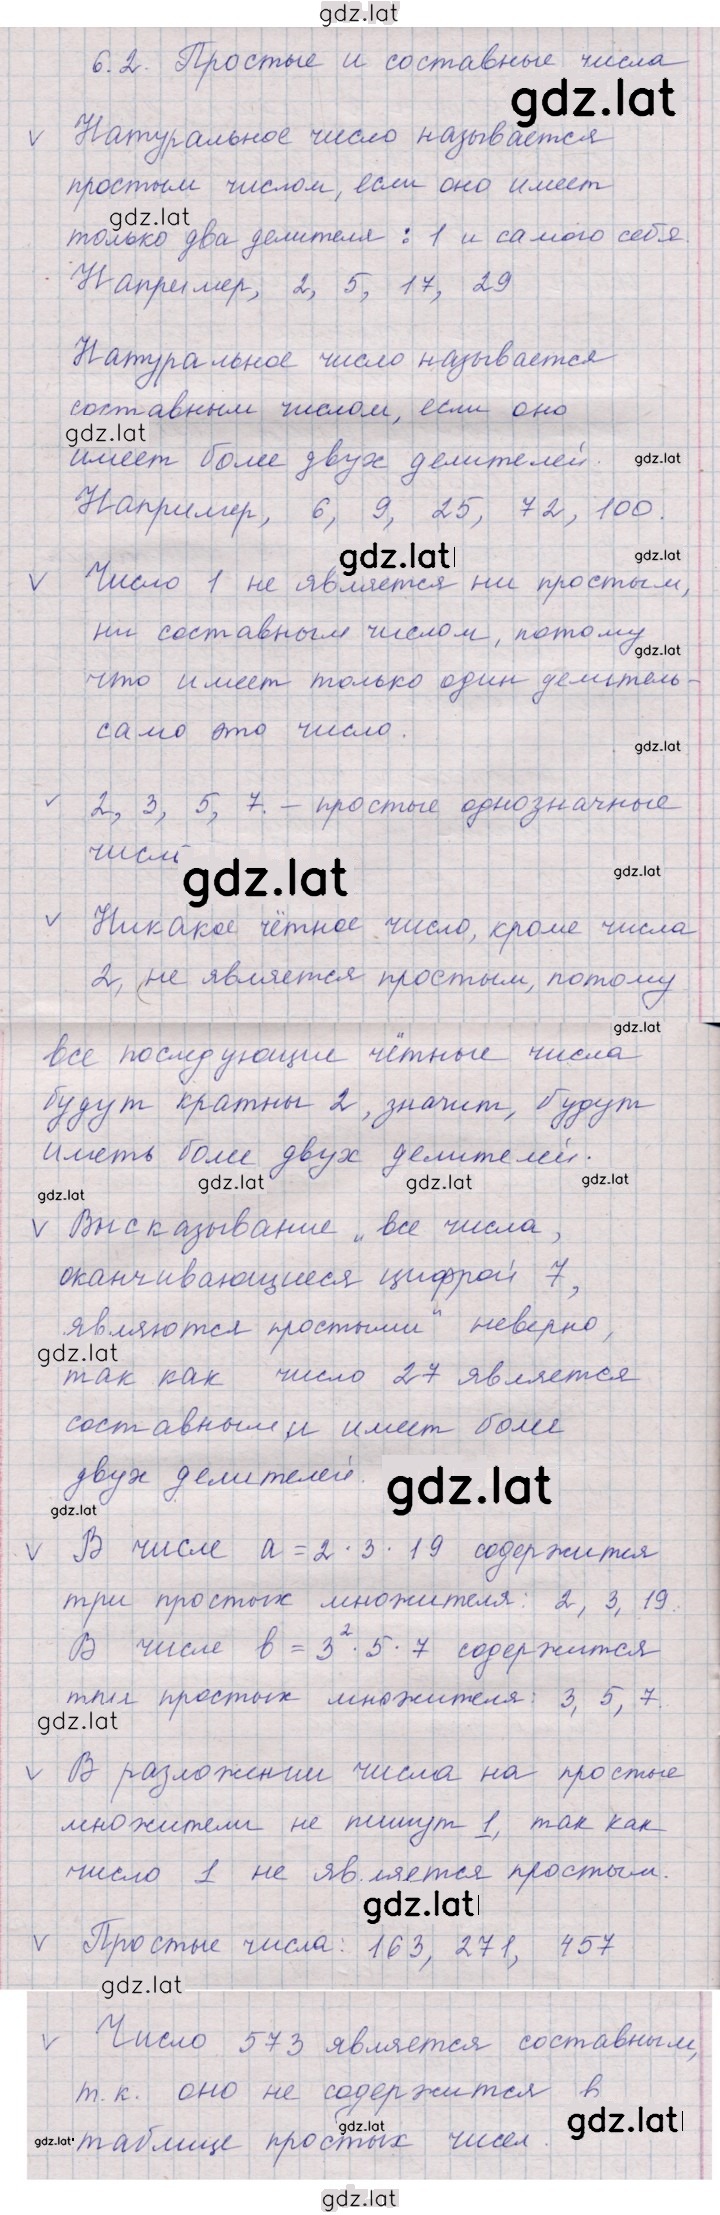 gdz.lat
6.2. Простые и составные числа
gdz.lat
v Натуральное число называется
простым числом, если оно имеет
gdz.lat
только два делителя: 1 и самого себя.
Например, 2, 5, 17, 29
Натуральное число называется
составным числом, если оно
gdz.lat
имеет более двух делителей.
gdz.lat
Например, 6, 9, 25, 72, 100.
gdz.lat
gdz.lat
v Число 1 не является ни простым,
ни составным числом, потому
gdz.lat
что имеет только один делитель-
само это число.
gdz.lat
v 2, 3, 5, 7. – простые однозначные
числа
gdz.lat
gdz.lat
v Никакое чётное число, кроме числа
2, не является простым, потому
gdz.lat
все последующие чётные числа
будут кратны 2, значит, будут
иметь более двух делителей.
gdz.lat
gdz.lat
gdz.lat
gdz.lat
v Высказывание „все числа,
оканчивающиеся цифрой 7,
являются простыми" неверно,
gdz.lat
так как число 27 является
составным и имеет более
двух делителей.
gdz.lat
gdz.lat
v В числе a = 2 · 3 · 19 содержится
три простых множителя: 2, 3, 19.
В числе b = 3² · 5 · 7 содержится
три простых множителя: 3, 5, 7.
gdz.lat
v В разложении числа на простые
множители не пишут 1, так как
число 1 не является простым.
gdz.lat
v Простые числа: 163, 271, 457
gdz.lat
v Число 573 является составным,
т.к. оно не содержится в
gdz.lat
gdz.lat
gdz.lat
таблице простых чисел.
gdz.lat